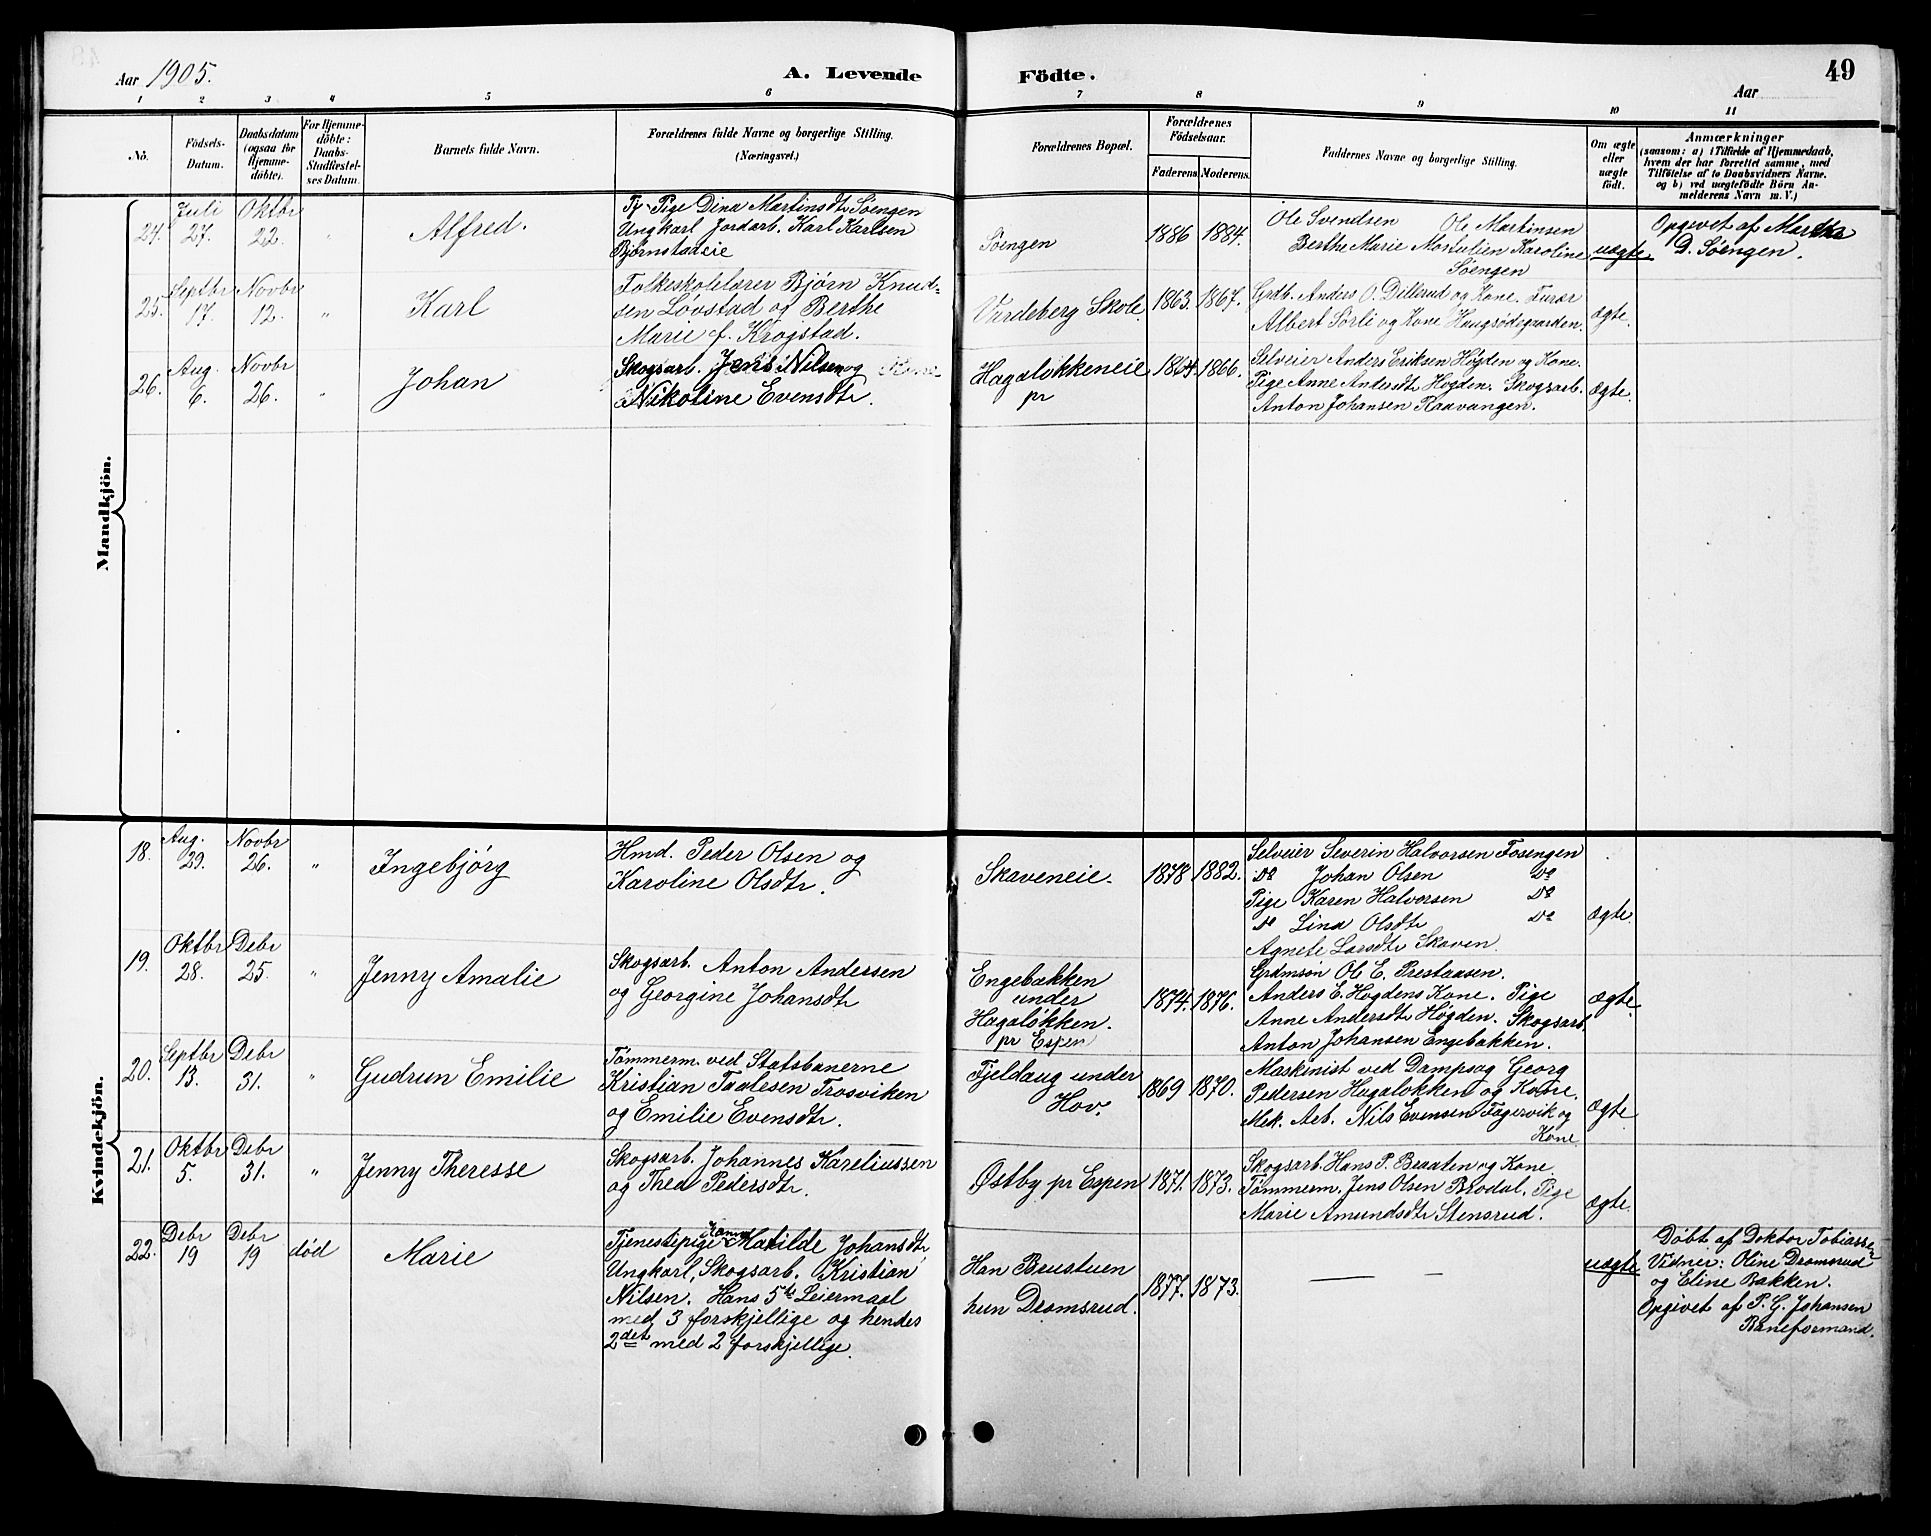 Aar 1905.
A. Levende Födte.
49
Aar
1 2 3 4 5 6 7 8 9 10 11
Nö.
Födsels-
Datum.
Daabsdatum
(ogsaa for
Hjemme-
döbte).
For Hjemme-
döbte:
Daabs-
Stadfæstel-
ses Datum.
Barnets fulde Navn.
Forældrenes fulde Navne og borgerlige Stilling.
(Næringsvei.)
Forældrenes Bopæl.
Forældrenes
Födselsaar.
Faderens. Moderens.
Faddernes Navne og borgerlige Stilling.
Om ægte
eller
uægte
födt.
Anmærkninger
(saasom: a) i Tilfælde af Hjemmedaab,
hvem der har forrettet samme, med
Tilföielse af to Daabsvidners Navne.
og b) ved uægtefödte Börn An-
melderens Navn m. V.)
Mandkjön.
24. Juli 27. Oktbr 22. " Alfred.
Tj. Pige Dina Martinsdtr Søengen
Ungkarl Jordarb. Karl Karlsen
Bjørnstadeie
Søengen 1886 1884.
Ole Svendsen Ole Martinsen
Berthe Marie Mostulien Karoline
Søengen
uægte
Opgivet af Martha
D. Søengen.
25. Septbr 17. Novbr 12. " Karl
Folkeskolelærer Bjørn Knud-
sen Løvstad og Berthe
Marie f. Krogstad.
Vardeberg Skole. 1863. 1867.
Grdb. Anders O. Dillerud og Kone. Furær
Albert Sørli og Kone Haugsødegaarden.
Ægte.
26. Aug. 6. Novbr 26. " Johan
Skogsarb. Jens Nilsen og Kone
Nikoline Evensdtr.
Hagaløkkeneie
pr
1864. 1866.
Selveier Anders Eriksen Høgden og Kone.
Pige Anne Andersdtr Høgden. Skogsarb.
Anton Johansen Raavangen.
Ægte.
Kvindekjön.
18. Aug. 29. Novbr 26. " Ingebjørg
Hmd. Peder Olsen og
Karoline Olsdtr.
Skaveneie. 1878 1882.
Selveier Severin Halvorsen Fosengen
Do Johan Olsen Do
Pige Karen Halvorsen Do
Do Lina Olsdtr Do
Agnete Larsdtr Skaven.
Ægte.
19. Oktbr 28. Debr 25. " Jenny Amalie
Skogsarb. Anton Andersen
og Georgine Johansdtr
Engebakken
under
Hagaløkken.
pr Espen
1874. 1876.
Grdmsøn Ol E. Prestaasen.
Anders E. Høgdens Kone. Pige
Anne Andersdtr Høgden. Skogsarb.
Anton Johansen Engebakken.
Ægte.
20. Septbr 13. Debr 31. " Gudrun Emilie
Tømmerm. ved Statsbanerne
Kristian Taalesen Trosviken
og Emilie Evensdtr.
Fjeldaug under
Hov.
1869 1870.
Maskinist ved Dampsag Georg
Pedersen Hagaløkken og Kone.
Mek. Aeb. Nils Evensen Fagervik og
Kone
Ægte.
21. Oktbr 5. Debr 31. " Jenny Theresse
Skogsarb. Johannes Kareliussen
og Thea Pedersdtr.
Østby pr Espen 1871. 1873.
Skogsarb. Hans P. Braaten og Kone.
Tømmerm. Jens Olsen Brodal. Pige
Marie Amundsdtr Stensrud.
Ægte.
22. Debr 19 Debr 19 død Marie
Tjenestepige Hanna Matilde Johansdtr
Ungkarl, Skogsarb. Kristian
Nilsen. Hans 5te Leiermaal
med 3 forskjellige og hendes
2det med 2 forskjellige.
Han Brustuen
hun Dromsrud.
1877. 1873.
— —
uægte
Døbt af Doktor Tobiassen
Vidner: Oline Dromsrud
og Eline Bakken.
Opgivet af P. G. Johansen
Baneformand.